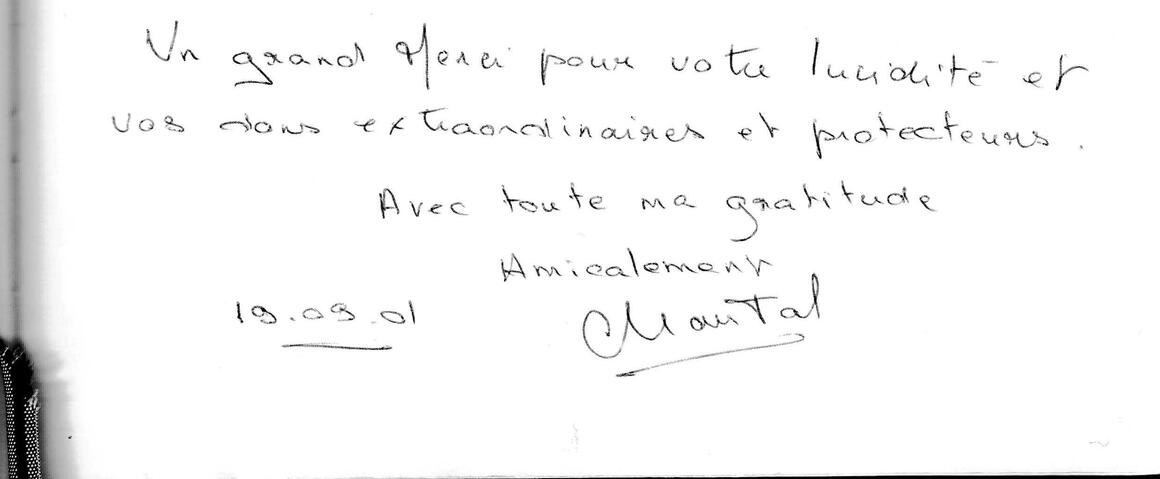 Un grand Merci pour votre lucidité et
vos dons extraordinaires et protecteurs.
Avec toute ma gratitude
Amicalement
19.09.01